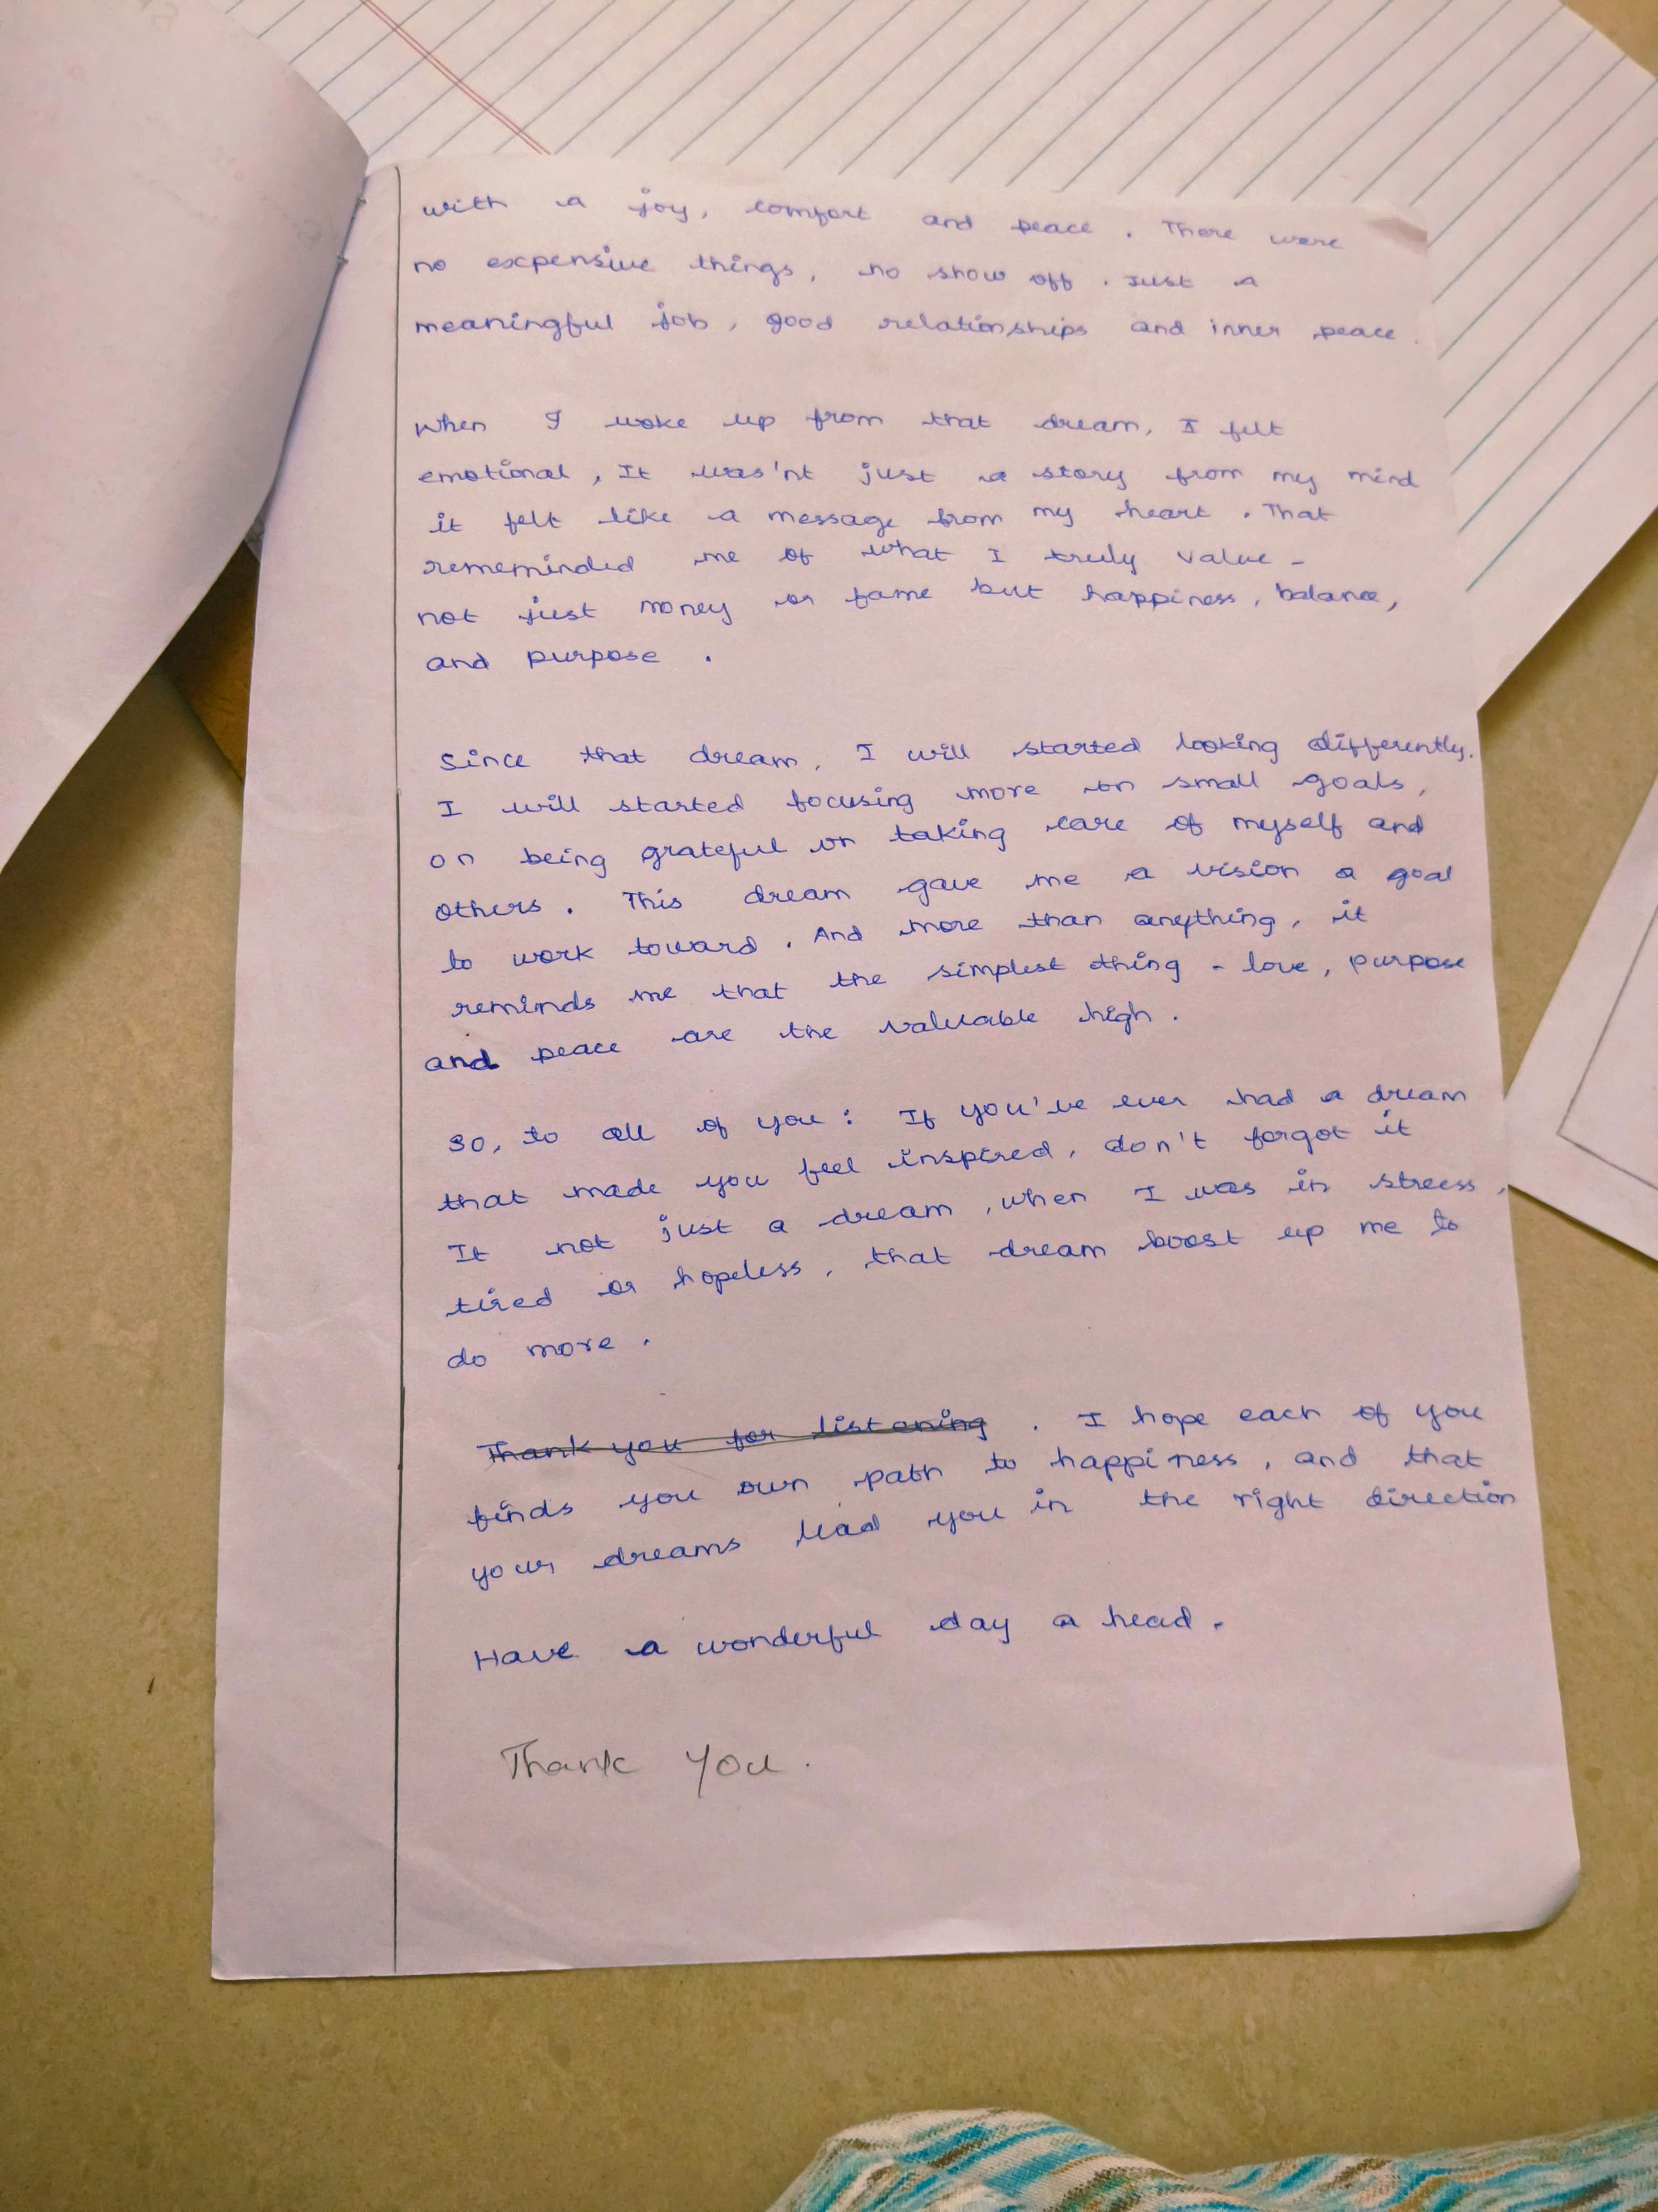 with a joy, comfort and peace. There were
no expensive things, no show off. Just a
meaningful job, good relationships and inner peace.
When I woke up from that dream, I felt
emotional, It was'nt just a story from my mind
it felt like a message from my heart. That
rememinded me of what I truly value -
not just money or fame but happiness, balance,
and purpose.
Since that dream, I will started looking differently.
I will started focusing more on small goals,
on being grateful on taking care of myself and
others. This dream gave me a vision a goal
to work toward. And more than anything, it
reminds me that the simplest thing - love, purpose
and peace are the valuable high.
So, to all of you: If you've ever had a dream
that made you feel inspired, don't forgot it
It not just a dream, when I was in stress,
tired or hopeless, that dream boost up me to
do more.
Thank you for listening. I hope each of you
finds you own path to happiness, and that
your dreams lead you in the right direction
Have a wonderful day a head.
Thank You.